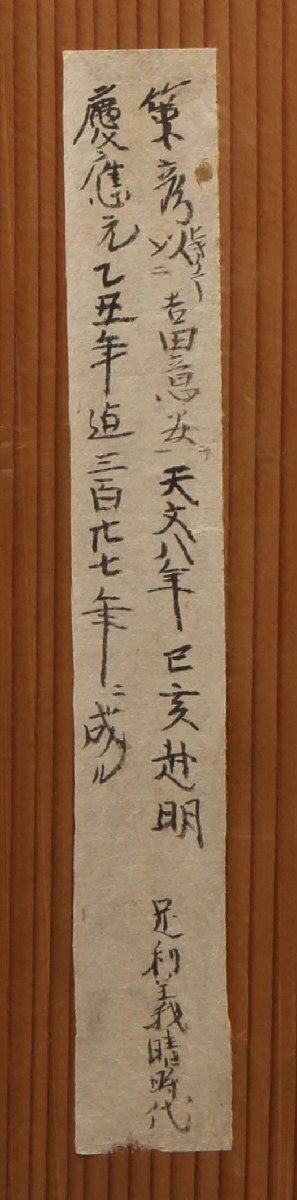 策彦 吉田意安 天文八年己亥赴明 足利義晴時代
慶應元乙丑年迠三百廿七年ニ成ル